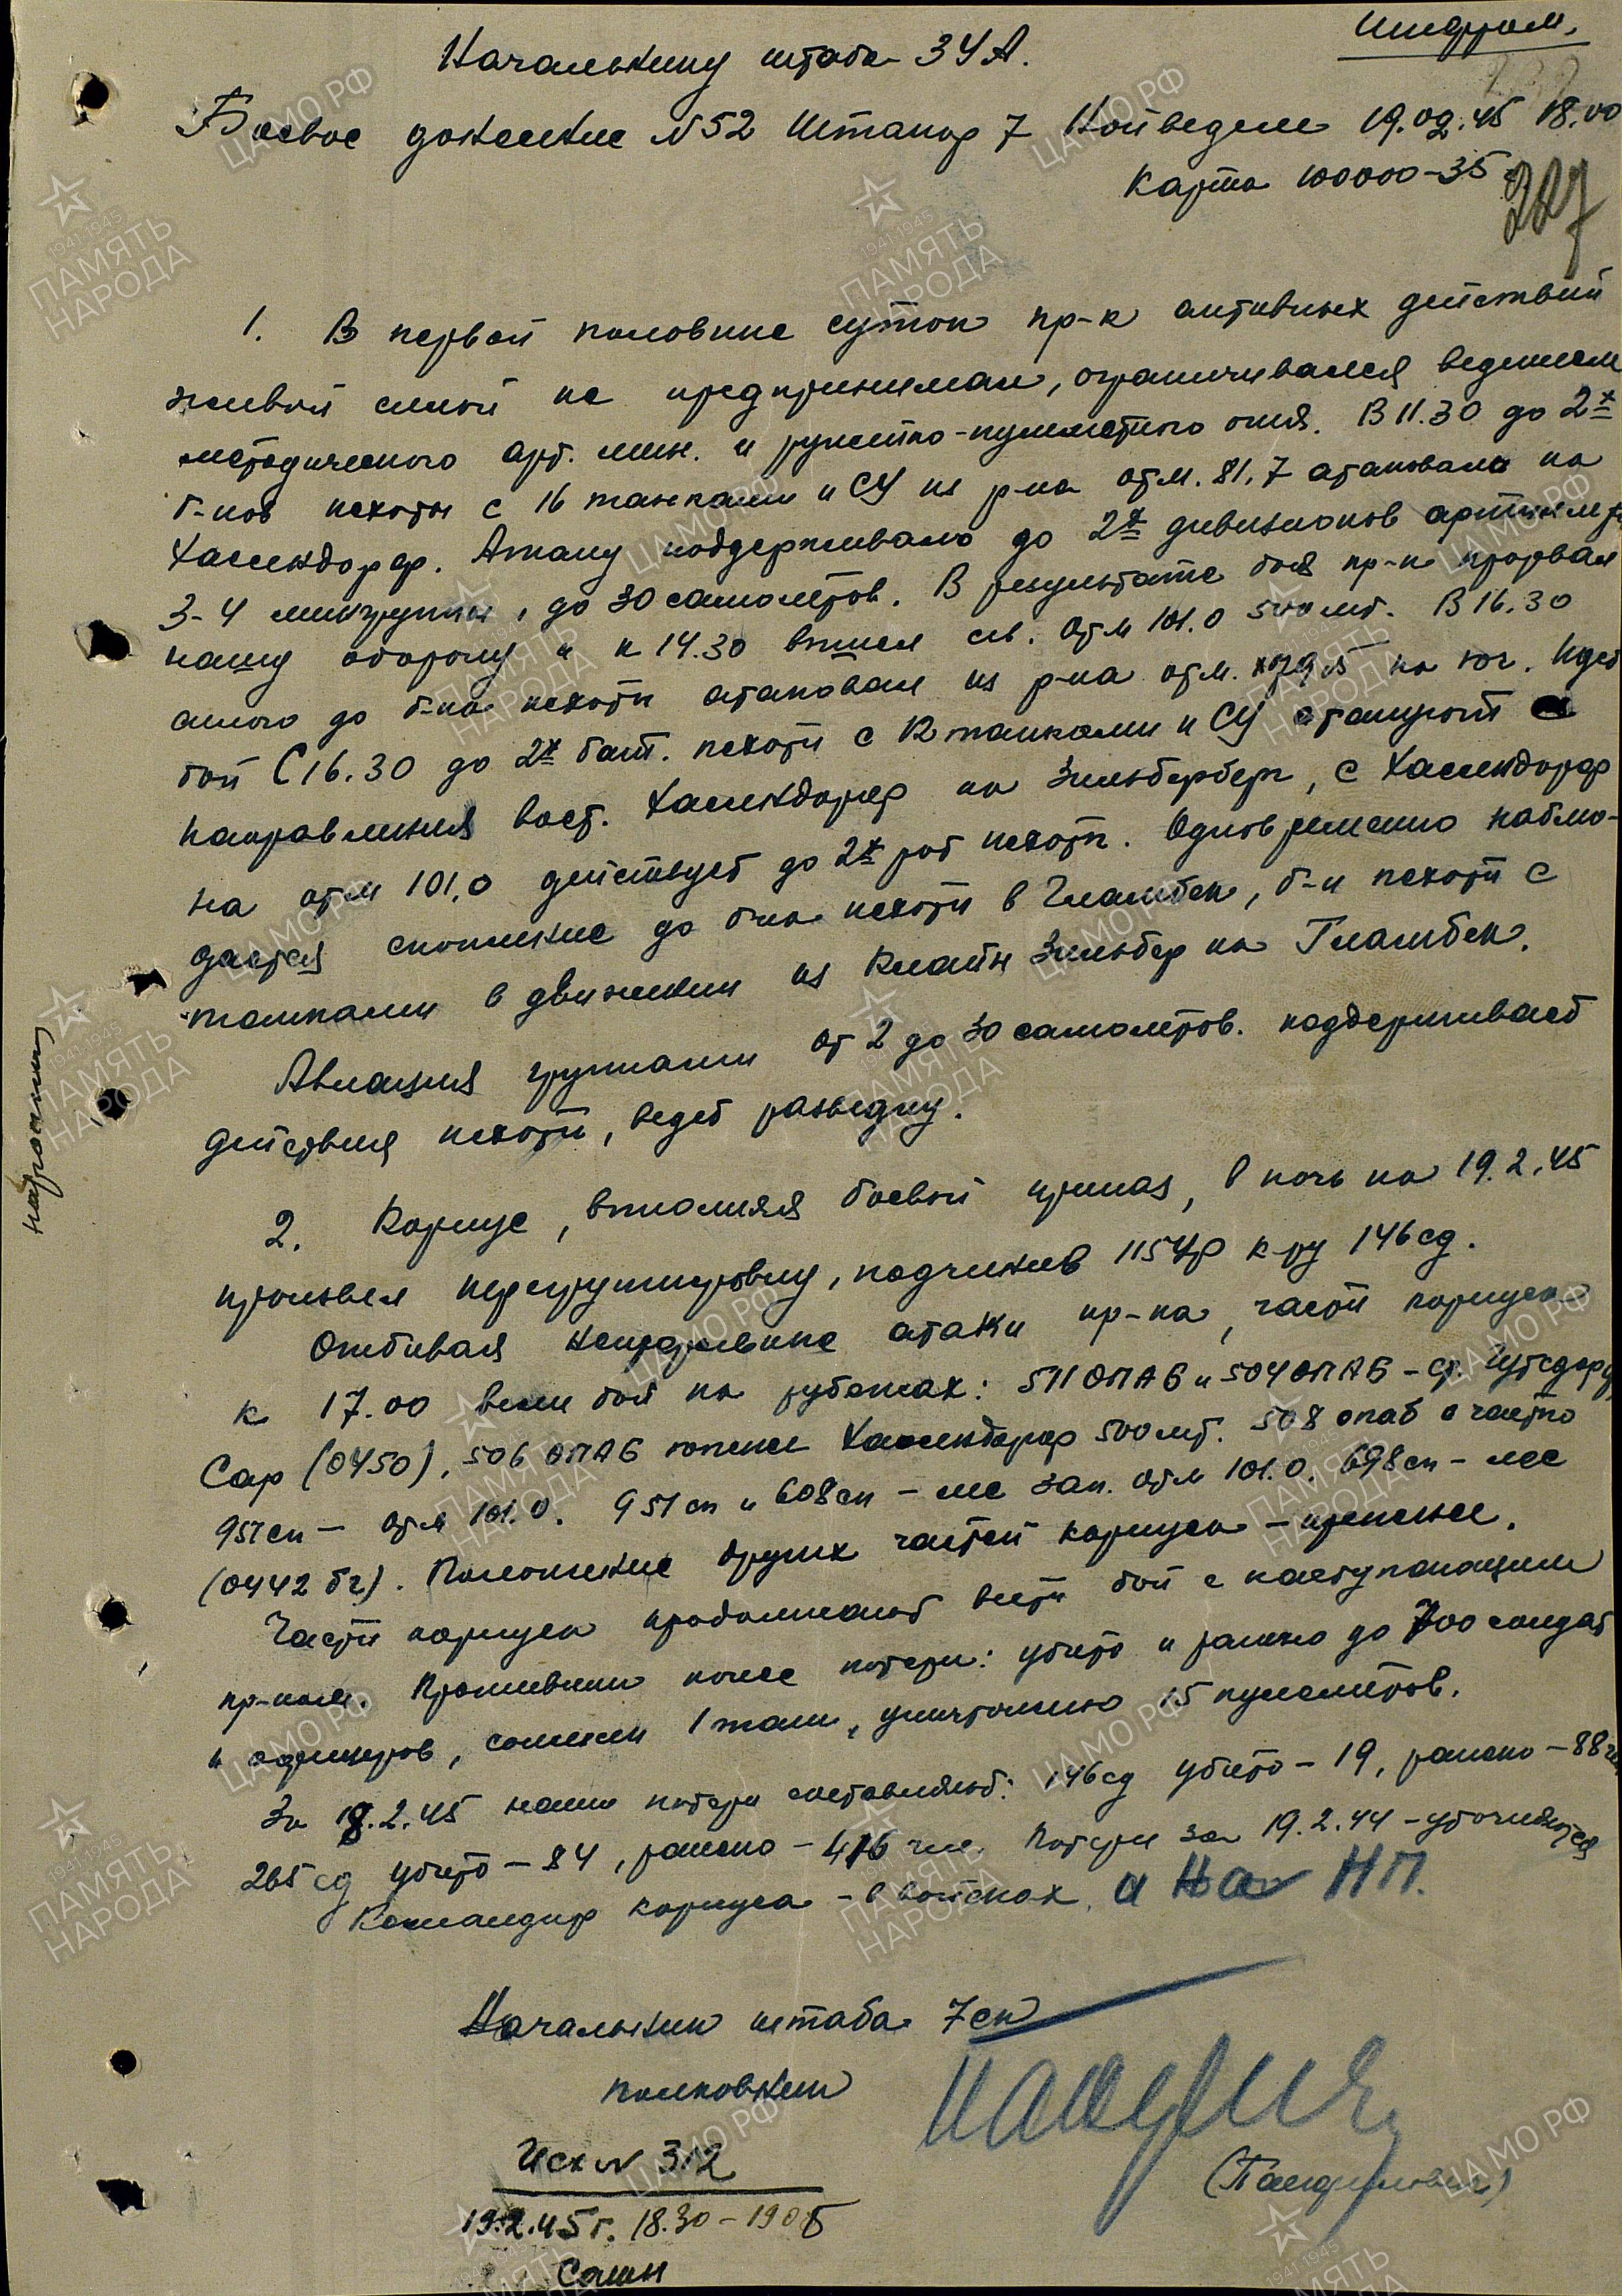 Шифром.
Начальнику штаба 3УА.
Боевое донесение N 52 Штакор 7 Нойведелл 19.02.45 18.00
Карта 100000-35
227
1. В первой половине суток пр-к активных действий
живой силой не предпринимал, ограничивался ведением
методического арт. мин. и ружейно-пулеметного огня. В 11.30 до 2х
б-нов пехоты с 16 танками и СУ из р-на отм. 81,7 атаковало на
Хассендорф. Атаку поддерживало до 2х дивизионов артиллер
3-4 мингруппы, до 30 самолетов. В результате боя пр-к прорвал
нашу оборону и к 14.30 вышел св. отм 101.0 500 мт. В 16.30
силою до б-на пехоты атаковал из р-на отм. 79,5 на юг. Идет
бой С 16.30 до 2х бат. пехоты с 12 танками и СУ атакуют с
направления вост. Хассендорф на Зильберберг, с Хассендорф
на отм 101,0 действует до 2х рот пехоты. Одновременно наблю-
дается скопление до б-на пехоты в Гламбек, б-н пехоты с
танками в движении из Клайн Зильбер на Гламбек.
Авиация группами от 2 до 30 самолетов. поддерживает
действия пехоты, ведет разведку.
2. Корпус, выполняя боевой приказ, в ночь на 19.2.45
произвел перегруппировку, подчинив 115УР к-ру 146сд.
Отбивая непрерывные атаки пр-ка, части корпуса
к 17.00 вели бой на рубежах: 511 ОПАБ и 504 ОПАБ - ст. Гутсдорф
Сар (0450), 506 ОПАБ южнее Хассендорф 500 мт. 508 опаб с частью
951сп - отм 101.0. 951сп и 608сп - лес зап. отм 101.0. 698сп - лес
(0442 бг). Положение других частей корпуса - прежнее.
Части корпуса продолжают вести бой с наступающим
пр-ком. Противник понес потери: убито и ранено до 700 солдат
и офицеров, сожжен 1 танк, уничтожено 15 пулеметов.
За 18.2.45 наши потери составляют: 146сд убито - 19, ранено - 88 чел
265сд убито - 84, ранено - 416 чел. Потери за 19.2.44 - уточняются
Командир корпуса - в войсках. и на НП.
Начальник штаба 7ск
полковник
(Панфилович)
Исх N 312
19.2.45г. 18.30-1905